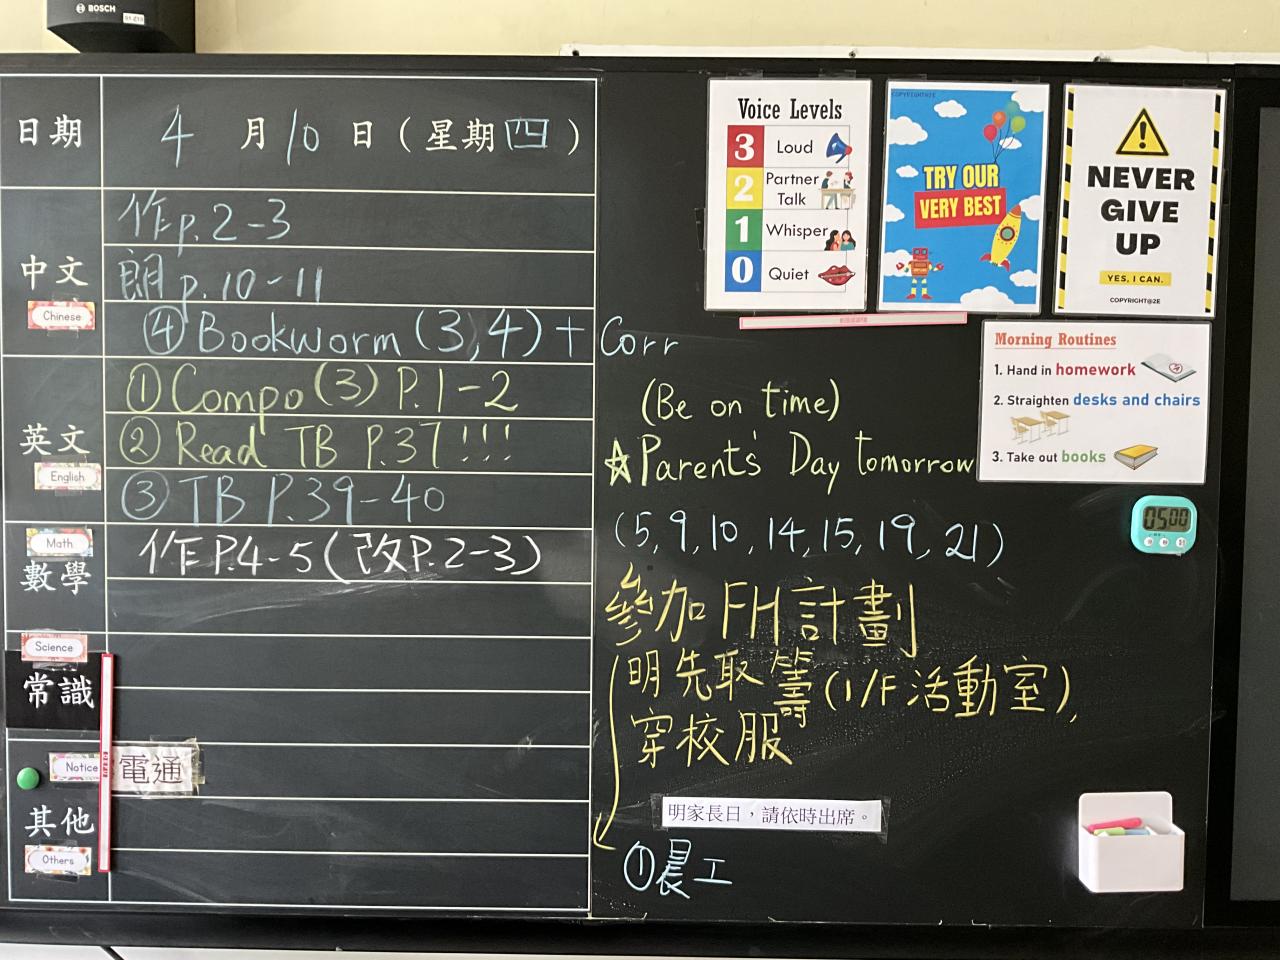 BOSCH
日期
4月10日（星期四）
中文
Chinese
作p.2-3
朗p.10-11
④Bookworm(3,4)+Corr
(Be on time)
英文
English
①Compo(3) P.1-2
②Read TB P.37!!!
③TB P.39-40
Math
數學
作P.4-5(改P.2-3)
Science
常識
Notice
電通
其他
Others
☆Parent's Day tomorrow
(5,9,10,14,15,19,21)
參加FH計劃
明先取籌(1/F活動室),
穿校服
明家長日，請依時出席。
①晨工
Voice Levels
3 Loud
2 Partner Talk
1 Whisper
0 Quiet
COPYRIGHT@2E
TRY OUR
VERY BEST
NEVER
GIVE
UP
YES, I CAN.
COPYRIGHT@2E
Morning Routines
1. Hand in homework
2. Straighten desks and chairs
3. Take out books
0500